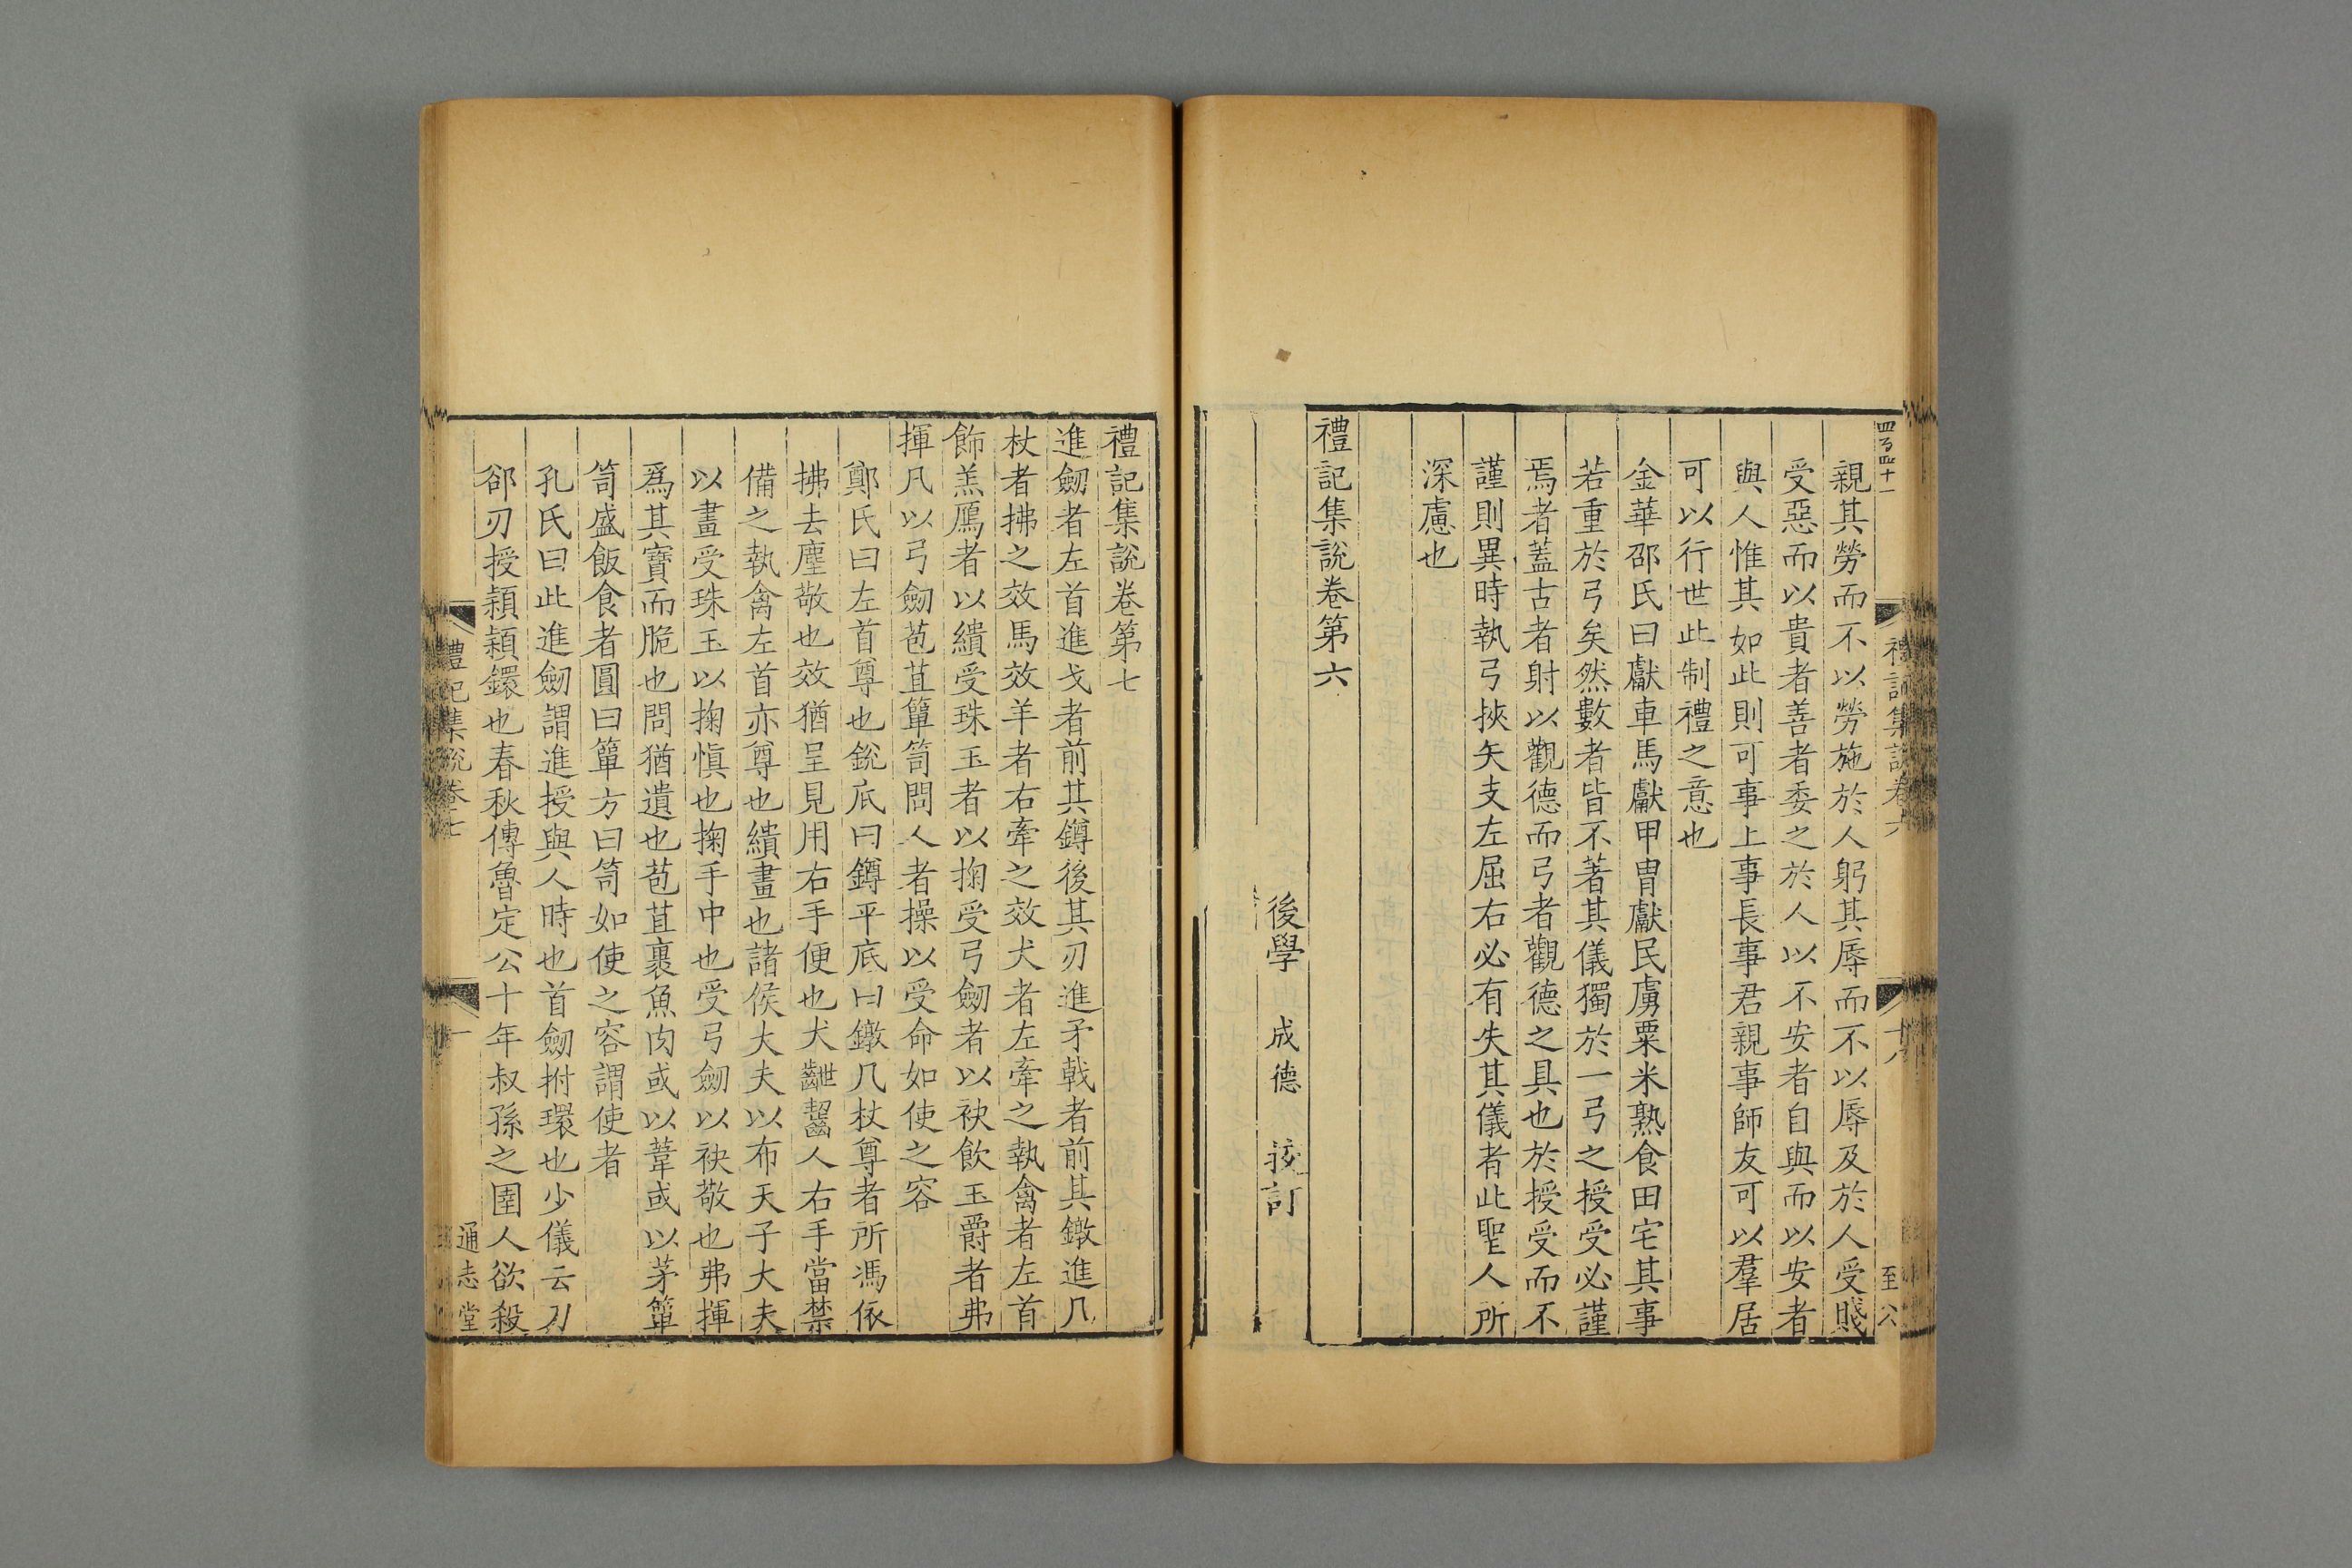 親其勞而不以勞施於人躬其辱而不以辱及於人受賤
受惡而以貴者善者委之於人以不安者自與而以安者
與人惟其如此則可事上事長事君親事師友可以羣居
可以行世此制禮之意也
金華邵氏曰獻車馬獻甲冑獻民虜粟米熟食田宅其事
若重於弓矣然數者皆不著其儀獨於一弓之授受必謹
焉者蓋古者射以觀德而弓者觀德之具也於授受而不
謹則異時執弓挾矢支左屈右必有失其儀者此聖人所
深慮也
禮記集說卷第六
後學 成德 挍訂
禮記集說卷第七
進劒者左首進戈者前其鐏後其刃進矛戟者前其鐓進几
杖者拂之效馬效羊者右牽之效犬者左牽之執禽者左首
飾羔鴈者以繢受珠玉者以掬受弓劒者以袂飲玉爵者弗
揮凡以弓劒苞苴簞笥問人者操以受命如使之容
鄭氏曰左首尊也銳底曰鐏平底曰鐓几杖尊者所馮依
拂去塵敬也效猶呈見用右手便也犬齛齧人右手當禁
備之執禽左首亦尊也繢畫也諸侯大夫以布天子大夫
以畫受珠玉以掬慎也掬手中也受弓劒以袂敬也弗揮
爲其寶而脆也問猶遺也苞苴裹魚肉或以葦或以茅簞
笥盛飯食者圓曰簞方曰笥如使之容謂使者
孔氏曰此進劒謂進授與人時也首劒拊環也少儀云刀
郤刃授穎穎鐶也春秋傳魯定公十年叔孫之圉人欲殺
禮記集說卷七
一
通志堂
禮記集說卷六
十八
至公